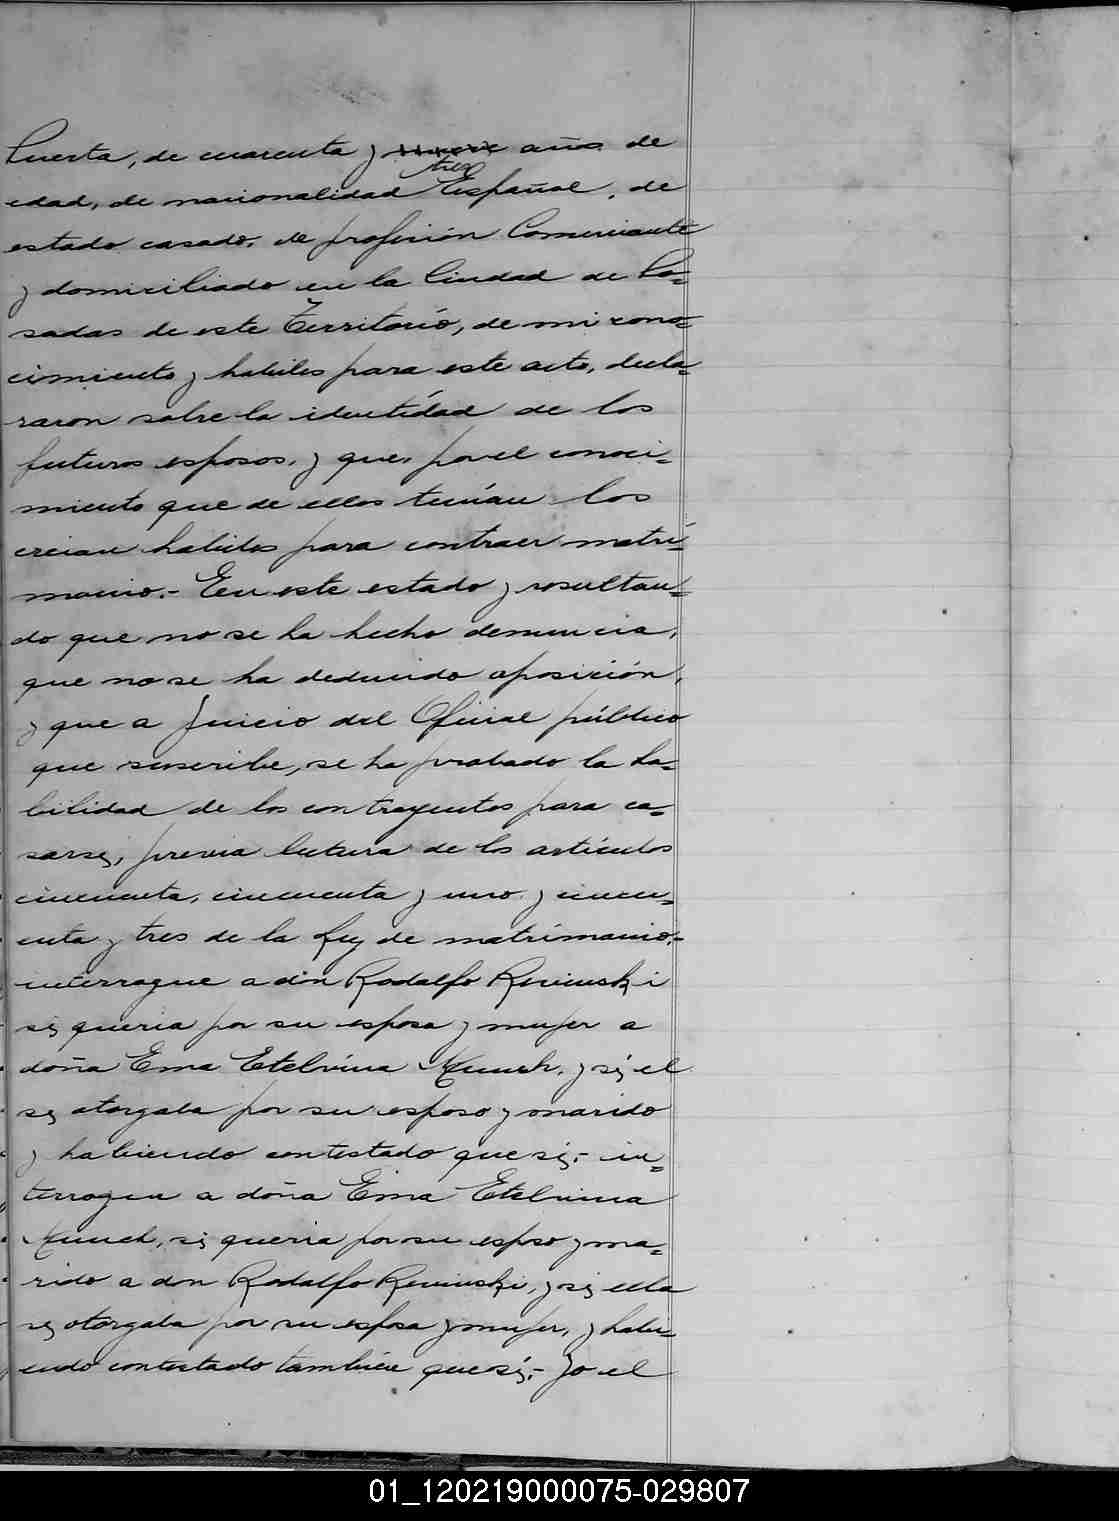 Puerta, de cuarenta y nueve años de
tres
edad, de nacionalidad Español, de
estado casado, de profesión Comerciante
y domiciliado en la Ciudad de Po=
sadas de este Territorio, de mi cono=
cimiento y habiles para este acto, decla=
raron sobre la identidad de los
futuros esposos, y que, por el conoci=
miento que de ellos tenían los
creian habiles para contraer matri=
monio.- En este estado y resultan=
do que no se ha hecho denuncia,
que no se ha deducido oposición,
y que a juicio del Oficial público
que suscribe, se ha probado la ha=
bilidad de los contrayentes para ca=
sarse, previa lectura de los artículos
cincuenta, cincuenta y uno y cincu=
enta y tres de la Ley de matrimonio.-
interrogue a don Rodolfo
si queria por su esposa y mujer a
doña Ema Etelvina y si el
se otorgaba por su esposo y marido
y habiendo contestado que si;- in=
terrogue a doña Ema Etelvina
si queria por su esposo y ma=
rido a don Rodolfo y si ella
se otorgaba por su esposa y mujer, y habi=
endo contestado también que sí;- yo el
01_120219000075-029807